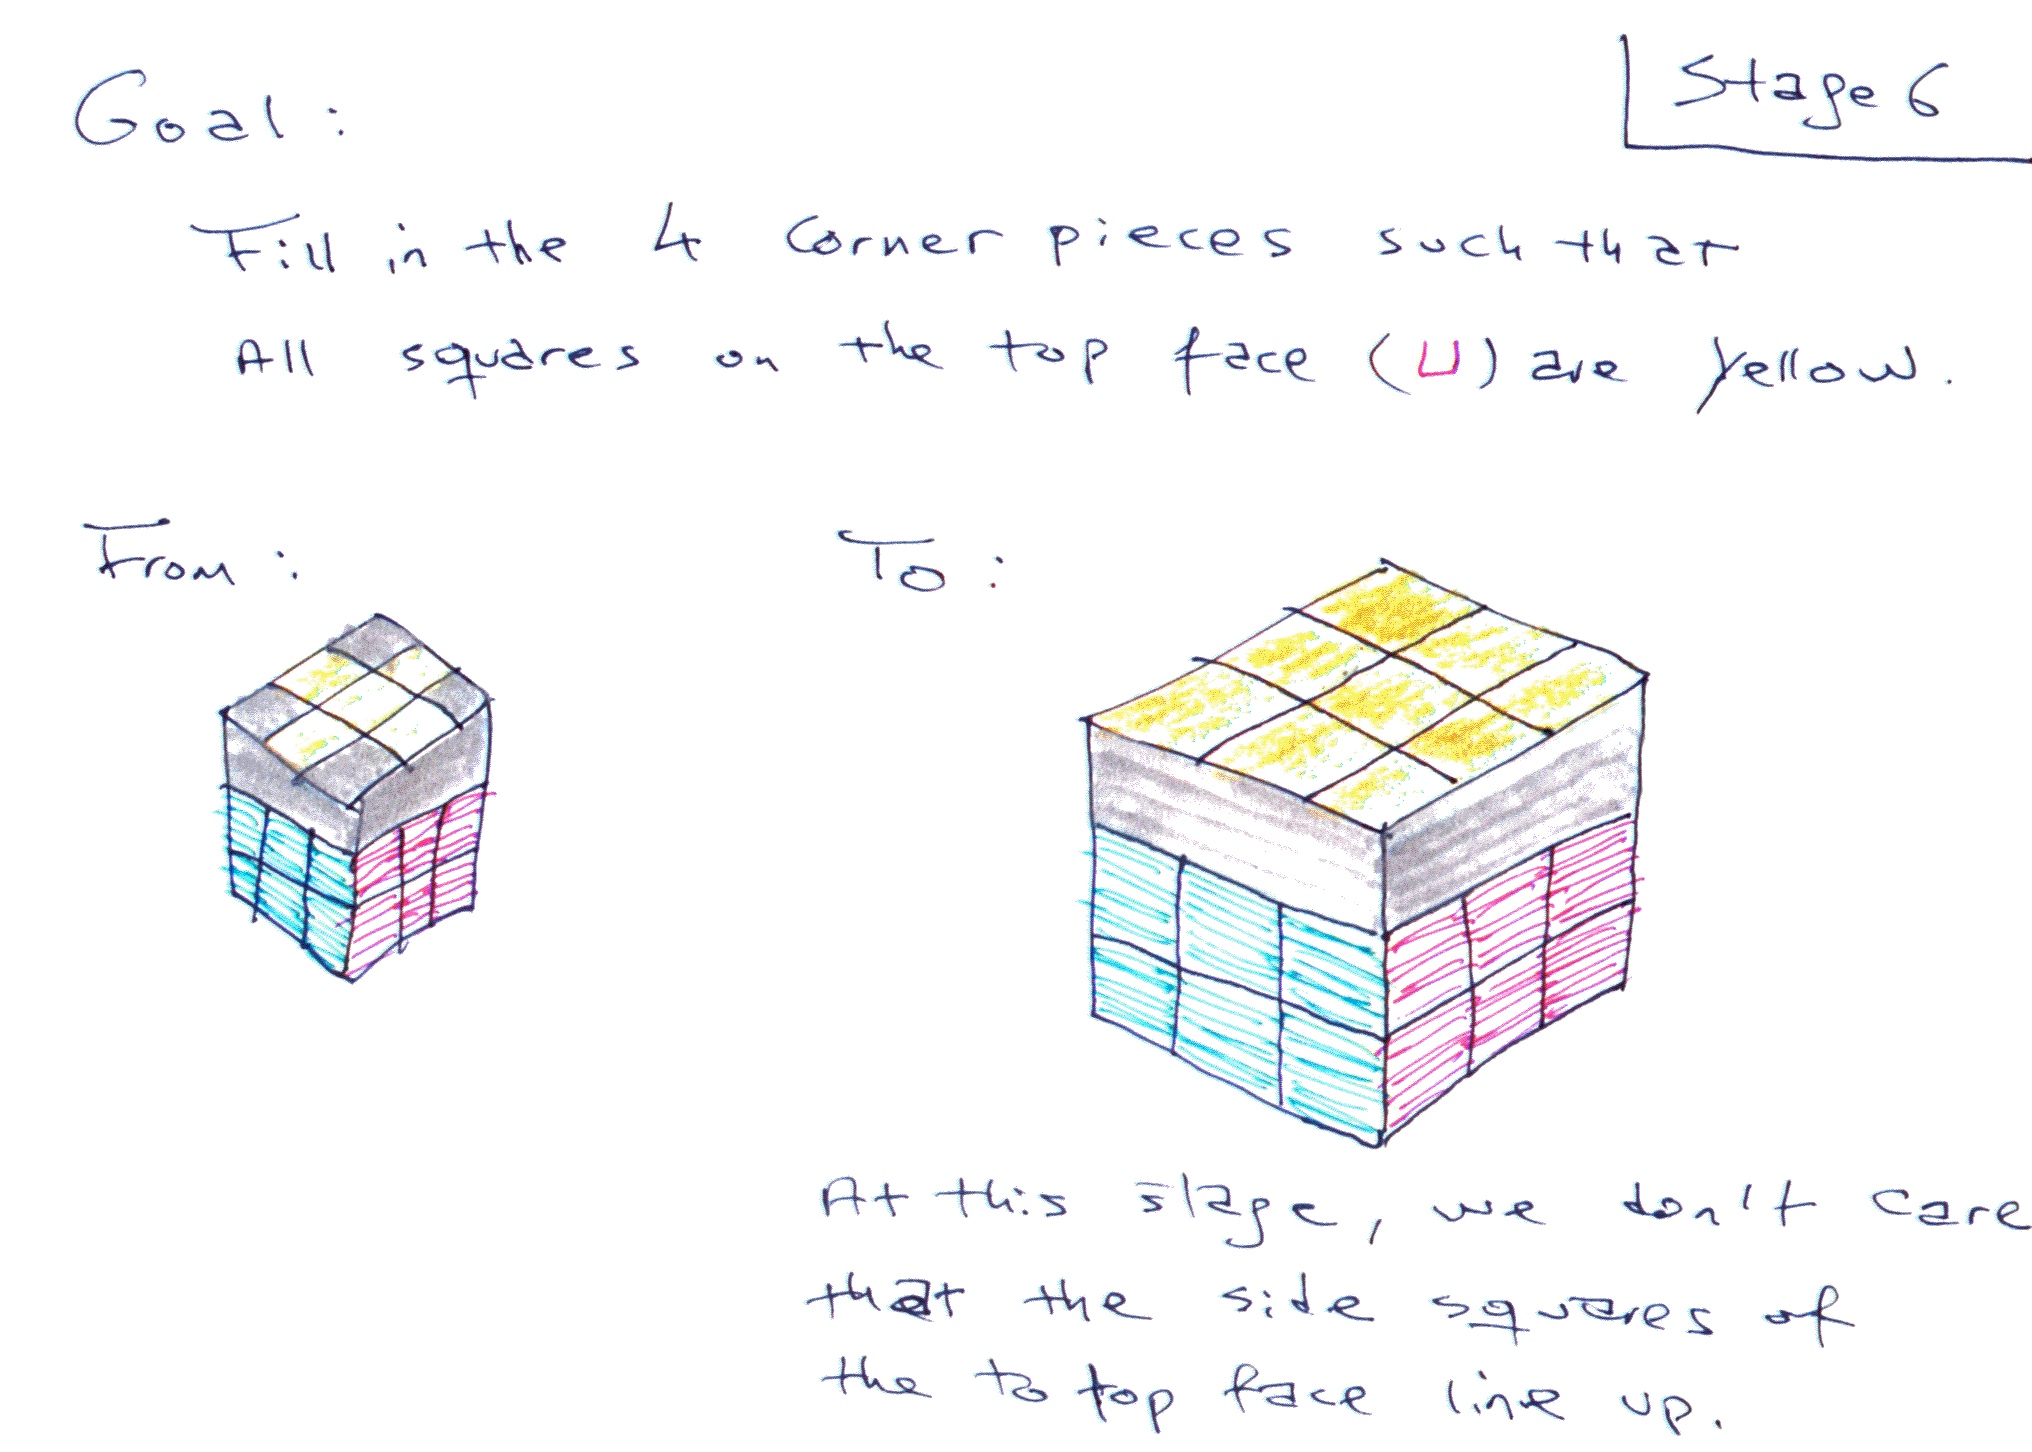 Goal:
Stage 6
Fill in the 4 corner pieces such that
All squares on the top face (U) are yellow.
From:
To:
At this stage, we don't care
that the side squares of
the to top face line up.